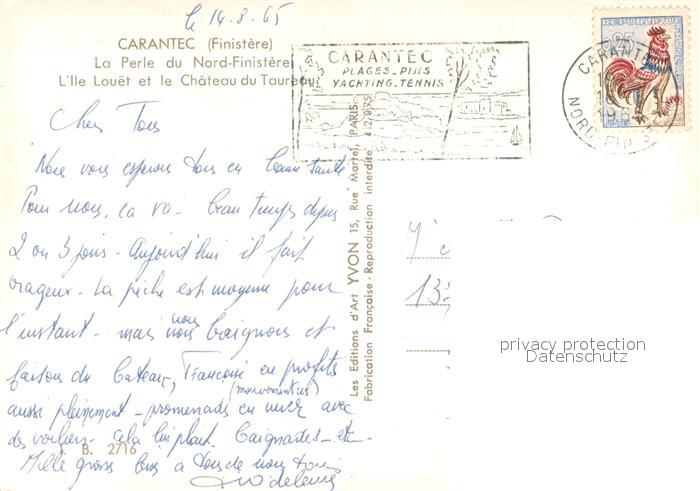 le 14-8-65
CARANTEC (Finistère)
La Perle du Nord-Finistère
L'Ile Louët et le Château du Taureau
CARANTEC
PLAGES-PINS
YACHTING-TENNIS
REPUBLIQUE FRANÇAISE
0,25
POSTES
CARANTEC
NORD-FINIST
Chers Tous
Nous vous espérons tous en bonne santé
Pour nous, ça va - beau temps depuis
2 ou 3 jours - Aujourd'hui il fait
orageux - La pêche est moyenne pour
l'instant - mais nous nous baignons et
faisons du bateau, Françoise en profite
(mouvementées)
aussi pleinement - promenades en mer avec
des voiliers - cela lui plait. Baignades - etc -
I. B. 2716
Mille gros à tous de nous tous
Les Editions d'Art YVON 15, Rue Martel, PARIS
Fabrication Française - Reproduction interdite
privacy protection
Datenschutz